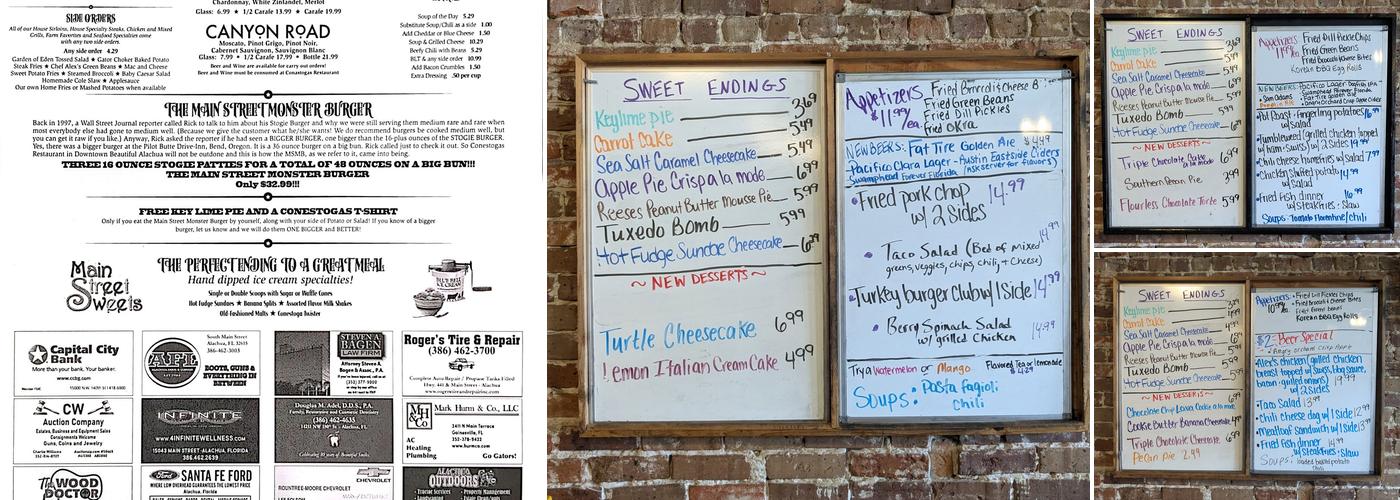 Chardonnay, White Zinfandel, Merlot
Glass: 6.99 ★ 1/2 Carafe 13.99 ★ Carafe 19.99
SIDE ORDERS
All of our House Sirloins, House Specialty Steaks, Chicken and Mixed
Grills, Farm Favorites and Seafood Specialties come
with any two side orders.
Any side order 4.29
Garden of Eden Tossed Salad ★ Gator Choker Baked Potato
Steak Fries ★ Chef Alex's Green Beans ★ Mac and Cheese
Sweet Potato Fries ★ Steamed Broccoli ★ Baby Caesar Salad
Homemade Cole Slaw ★ Applesauce
Our own Home Fries or Mashed Potatoes when available
CANYON ROAD
Moscato, Pinot Grigio, Pinot Noir,
Cabernet Sauvignon, Sauvignon Blanc
Glass: 7.99 ★ 1/2 Carafe 17.99 ★ Carafe 21.99
Beer and Wine are available for carry out orders!
Beer and Wine must be consumed at Conestogas Restaurant
Soup of the Day 5.29
Substitute Soup/Chili as a side 1.00
Add Cheddar or Blue Cheese 1.50
Soup & Grilled Cheese 10.29
Beefy Chili with Beans 5.29
BLT & any side order 10.99
Add Bacon Crumbles 1.50
Extra Dressing .50 per cup
THE MAIN STREET MONSTER BURGER
Back in 1997, a Wall Street Journal reporter called Rick to talk to him about his Stogie Burger and why we were still serving them medium rare and rare when
most everyplace else had gone to medium well. (Because we give the customer what he/she wants! We do recommend burgers be cooked medium well, but
you can get it raw if you like.) Anyway, Rick asked the reporter if he had seen a BIGGER BURGER, one bigger than the 16-plus ounces of the STOGIE BURGER.
Yes, there was a bigger burger at the Pilot Butte Drive-Inn, Bend, Oregon. It is a 36 ounce burger on a big bun. Rick called just to check it out. So Conestogas
Restaurant in Downtown Beautiful Alachua will not be outdone and this is how the MSMB, as we refer to it, came into being.
THREE 16 OUNCE STOGIE PATTIES FOR A TOTAL OF 48 OUNCES ON A BIG BUN!!!
THE MAIN STREET MONSTER BURGER
Only $32.99!!!
FREE KEY LIME PIE AND A CONESTOGAS T-SHIRT
Only if you eat the Main Street Monster Burger by yourself, along with your side of Potato or Salad! If you know of a bigger
burger, let us know and we will do them ONE BIGGER and BETTER!
Main
Street
Sweets
THE PERFECT ENDING TO A GREAT MEAL
Hand dipped ice cream specialties!
Single or Double Scoops with Sugar or Waffle Cones
Hot Fudge Sundaes ★ Banana Splits ★ Assorted Flavor Milk Shakes
Old-Fashioned Malts ★ Conestoga Twister
Capital City
Bank
More than your bank. Your banker.
www.ccbg.com
AFF
South Main Street
Alachua, FL 32615
386-462-3003
BOOTS, GUNS &
EVERYTHING IN
BETWEEN
STEVEN A.
BAGEN
LAW FIRM
Attorney Steven A.
Bagen & Assoc., P.A.
Roger's Tire & Repair
(386) 462-3700
Complete Auto Repair / Propane Tanks Filled
Hwy. 441 & Main Street - Alachua
CW
Auction Company
Estates, Business and Equipment Sales
Consignments Welcome
Guns, Coins and Jewelry
INFINITE
WWW.4INFINITEWELLNESS.COM
15043 MAIN STREAT - ALACHUA, FLORIDA
386.462.2639
Douglas M. Adel, D.D.S., P.A.
Family, Restorative and Cosmetic Dentistry
(386) 462-4635
Mark Hurm & Co., LLC
AC
Heating
Plumbing
3411 N Main Terrace
Gainesville, FL
352-378-9422
www.hurmco.com
Go Gators!
The WOOD
DOCTOR
Ford
SANTA FE FORD
WHERE LOW OVERHEAD GUARANTEES THE LOWEST PRICE
Alachua, Florida
CHEVROLET
ROUNTREE-MOORE CHEVROLET
ALACHUA
OUTDOORS
SWEET ENDINGS
Keylime pie 3.69
Carrot Cake 5.49
Sea Salt Caramel Cheesecake 5.49
Apple Pie Crisp a la mode 6.99
Reeses Peanut Butter Mousse Pie 5.99
Tuxedo Bomb 5.99
Hot Fudge Sundae Cheesecake 6.29
~ NEW DESSERTS ~
Turtle Cheesecake 6.99
Lemon Italian Cream Cake 4.99
Appetizers $11.99/ea.
Fried Broccoli Cheese B
Fried Green Beans
Fried Dill Pickles
Fried Okra
NEW BEERS: Fat Tire Golden Ale $4.49
Pacifico Clara Lager - Austin Eastside Ciders
Swamphead Forever Florida (ask server for flavors)
• Fried pork chop w/ 2 Sides 14.99
• Taco Salad (Bed of mixed greens, veggies, chips, chili, + Cheese) 14.99
• Turkey burger Club w/ 1 Side 14.99
• Berry Spinach Salad w/ grilled Chicken 14.99
Try a Watermelon or Mango Flavored Tea or lemonade $4.29
Soups: Pasta fagioli
Chili
SWEET ENDINGS
Keylime pie 3.69
Carrot Cake
Sea Salt Caramel Cheesecake
Apple Pie Crisp a la mode
Reeses Peanut Butter Mousse Pie
Tuxedo Bomb
Hot Fudge Sundae Cheesecake
~ NEW DESSERTS ~
Triple Chocolate Cake a la mode 6.99
Southern Pecan Pie 3.99
Flourless Chocolate Torte 5.99
Appetizers
Fried Dill Pickle Chips
Fried Green Beans
Fried Broccoli Cheese Bites
Korean BBQ Egg Rolls
• Pot Roast - fingerling potatoes w/ salad 16.99
• Tumbleweed (grilled chicken topped w/ ham + swiss) w/ 2 sides
• Chili cheese homefries w/ salad
• Chicken stuffed potato w/ Salad 14.99
• Fried fish dinner w/ steakfries + Slaw 16.99
Soups: Tomato Florentine/chili
SWEET ENDINGS
Keylime pie
Carrot Cake
Sea Salt Caramel Cheesecake
Apple Pie Crisp a la mode
Reeses Peanut Butter Mousse Pie
Tuxedo Bomb
Hot Fudge Sundae Cheesecake
~ NEW DESSERTS ~
Cookie Butter Banana Cheesecake
Triple Chocolate Cheesecake 6.99
Pecan Pie 2.99
Appetizers
• Fried Dill Pickles Chips
• Fried Broccoli + Cheese Bites
Fried Green beans
Korean BBQ Egg Rolls
$2 Beer Special
• Alex's chicken (grilled chicken breast topped w/ swiss, bbq sauce, bacon + grilled onions) w/ 2 sides 19.99
• Taco Salad 13.99
• Chili cheese dog w/ 1 Side 12.99
• Meatloaf Sandwich w/ 1 Side
• Fried fish dinner w/ steakfries + Slaw 14.99
Soups: loaded baked potato